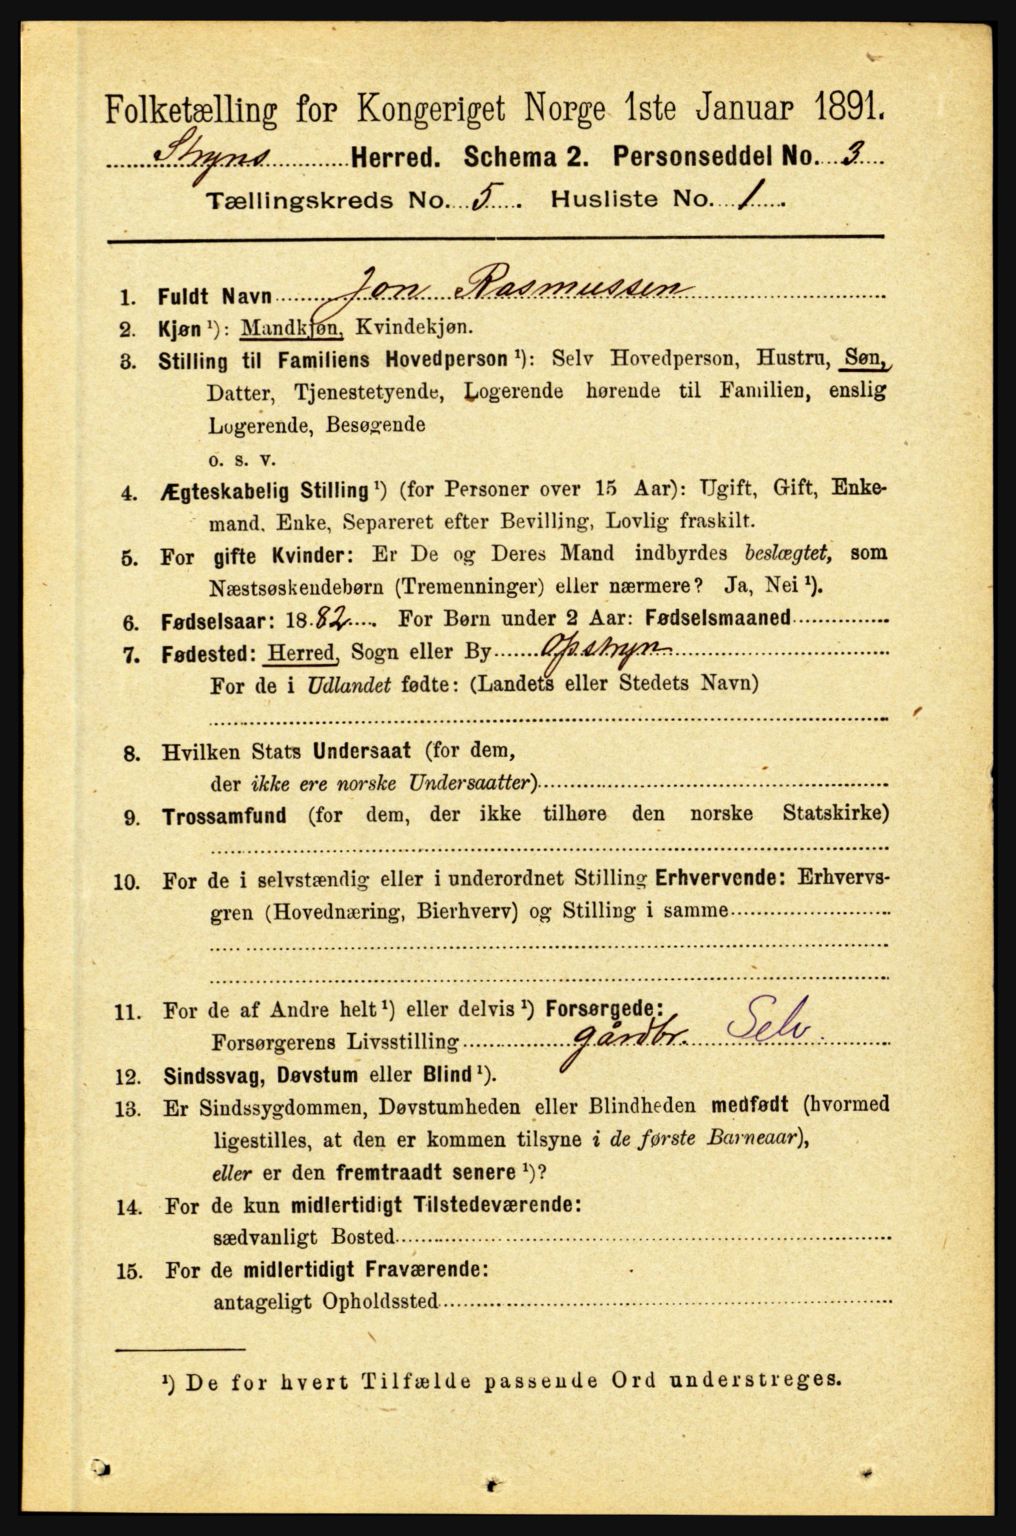 Folketælling for Kongeriget Norge 1ste Januar 1891.
Stryns Herred. Schema 2. Personseddel No. 3
Tællingskreds No. 5. Husliste No. 1.
1. Fuldt Navn Jon Rasmussen
2. Kjøn ¹): Mandkjøn, Kvindekjøn.
3. Stilling til Familiens Hovedperson ¹): Selv Hovedperson, Hustru, Søn,
Datter, Tjenestetyende, Logerende hørende til Familien, enslig
Logerende, Besøgende
o. s. v.
4. Ægteskabelig Stilling ¹) (for Personer over 15 Aar): Ugift, Gift, Enke-
mand, Enke, Separeret efter Bevilling, Lovlig fraskilt.
5. For gifte Kvinder: Er De og Deres Mand indbyrdes beslægtet, som
Næstsøskendebørn (Tremenninger) eller nærmere? Ja, Nei ¹).
6. Fødselsaar: 1882. For Børn under 2 Aar: Fødselsmaaned
7. Fødested: Herred, Sogn eller By Opstryn
For de i Udlandet fødte: (Landets eller Stedets Navn)
8. Hvilken Stats Undersaat (for dem,
der ikke ere norske Undersaatter)
9. Trossamfund (for dem, der ikke tilhøre den norske Statskirke)
10. For de i selvstændig eller i underordnet Stilling Erhvervende: Erhvervs-
gren (Hovednæring, Bierhverv) og Stilling i samme
11. For de af Andre helt ¹) eller delvis ¹) Forsørgede:
Forsørgerens Livsstilling gårdbr. Selv.
12. Sindssvag, Døvstum eller Blind ¹).
13. Er Sindssygdommen, Døvstumheden eller Blindheden medfødt (hvormed
ligestilles, at den er kommen tilsyne i de første Barneaar),
eller er den fremtraadt senere ¹)?
14. For de kun midlertidigt Tilstedeværende:
sædvanligt Bosted
15. For de midlertidigt Fraværende:
antageligt Opholdssted
¹) De for hvert Tilfælde passende Ord understreges.